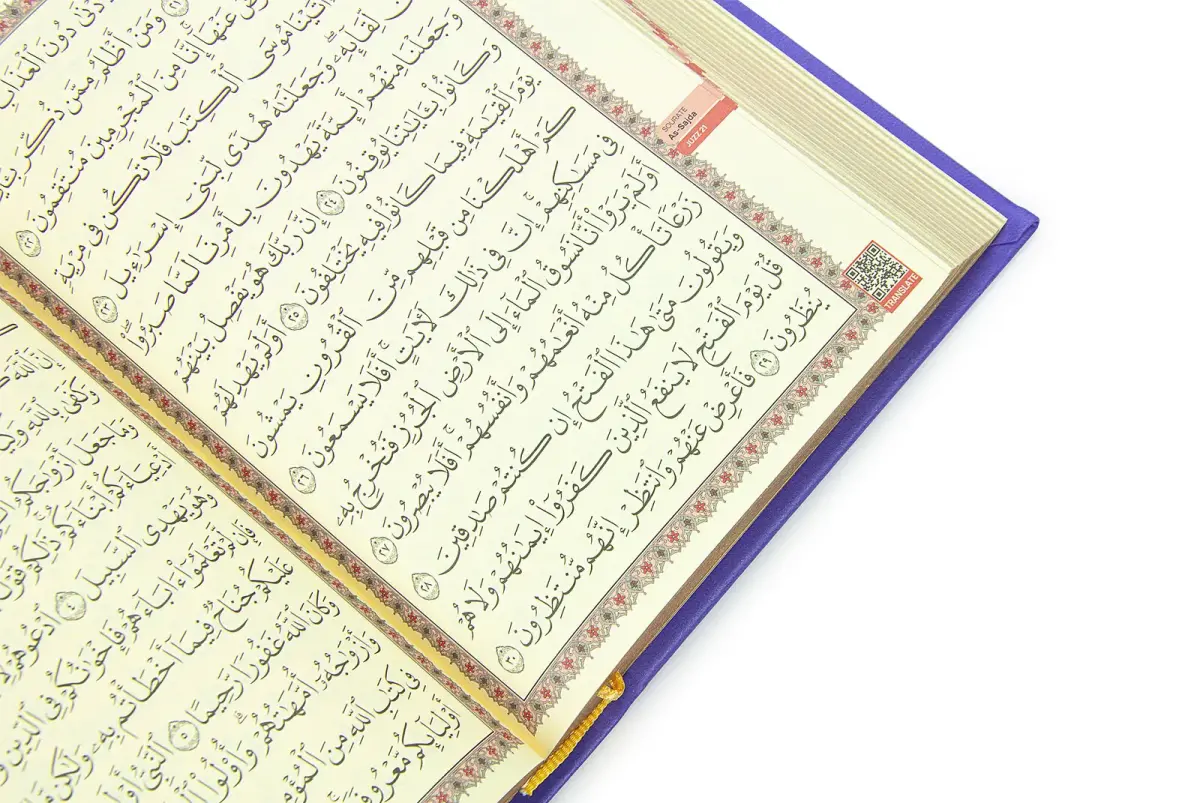 دْنَىٰ دُونَ ٱلْعَذَابِ
وَمَنْ أَظْلَمُ مِمَّن ذُكِّرَ
عَنْهَآ ۚ إِنَّا مِنَ ٱلْمُجْرِمِينَ مُنتَقِمُونَ ٢٢
ءَاتَيْنَا مُوسَى ٱلْكِتَٰبَ فَلَا تَكُن فِى مِرْيَةٍ
لِّقَآئِهِۦ ۖ وَجَعَلْنَٰهُ هُدًى لِّبَنِىٓ إِسْرَٰٓءِيلَ ٢٣
وَجَعَلْنَا مِنْهُمْ أَئِمَّةً يَهْدُونَ بِأَمْرِنَا لَمَّا صَبَرُوا۟ ۖ
وَكَانُوا۟ بِـَٔايَٰتِنَا يُوقِنُونَ ٢٤ إِنَّ رَبَّكَ هُوَ يَفْصِلُ بَيْنَهُمْ
يَوْمَ ٱلْقِيَٰمَةِ فِيمَا كَانُوا۟ فِيهِ يَخْتَلِفُونَ ٢٥ أَوَلَمْ يَهْدِ لَهُمْ
كَمْ أَهْلَكْنَا مِن قَبْلِهِم مِّنَ ٱلْقُرُونِ يَمْشُونَ
فِى مَسَٰكِنِهِمْ ۚ إِنَّ فِى ذَٰلِكَ لَـَٔايَٰتٍ ۖ أَفَلَا يَسْمَعُونَ ٢٦
أَوَلَمْ يَرَوْا۟ أَنَّا نَسُوقُ ٱلْمَآءَ إِلَى ٱلْأَرْضِ ٱلْجُرُزِ فَنُخْرِجُ بِهِۦ
زَرْعًا تَأْكُلُ مِنْهُ أَنْعَٰمُهُمْ وَأَنفُسُهُمْ ۖ أَفَلَا يُبْصِرُونَ ٢٧
وَيَقُولُونَ مَتَىٰ هَٰذَا ٱلْفَتْحُ إِن كُنتُمْ صَٰدِقِينَ ٢٨
قُلْ يَوْمَ ٱلْفَتْحِ لَا يَنفَعُ ٱلَّذِينَ كَفَرُوٓا۟ إِيمَٰنُهُمْ وَلَا هُمْ
يُنظَرُونَ ٢٩ فَأَعْرِضْ عَنْهُمْ وَٱنتَظِرْ إِنَّهُم مُّنتَظِرُونَ ٣٠
SOURATE
As-Sajda
JUZZ 21
TRANSLATE
وَكَفَىٰ بِٱللَّهِ
وَمَا جَعَلَ أَزْوَٰجَكُمُ
أَدْعِيَآءَكُمْ أَبْنَآءَكُمْ ۚ ذَٰلِكُمْ قَوْلُكُم
وَهُوَ يَهْدِى ٱلسَّبِيلَ ٤ ٱدْعُوهُمْ
فَإِن لَّمْ تَعْلَمُوٓا۟ ءَابَآءَهُمْ فَإِخْوَٰنُكُمْ فِى ٱلدِّينِ
عَلَيْكُمْ جُنَاحٌ فِيمَآ أَخْطَأْتُم بِهِۦ وَلَٰكِن
وَكَانَ ٱللَّهُ غَفُورًا رَّحِيمًا ٥ ٱلنَّبِىُّ
وَأَزْوَٰجُهُۥٓ أُمَّهَٰتُهُمْ ۗ وَأُو۟لُوا۟
فِى كِتَٰبِ ٱللَّهِ مِنَ
أَوْلِيَآئِكُم مَّعْرُوفًا ۚ